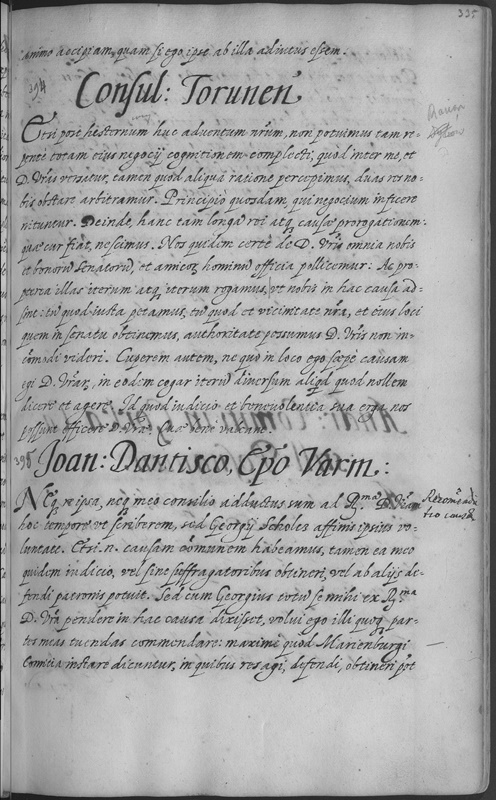 335
animo accipiam, quam si ego ipse ab illa adiutus essem.
394
Consul: Torunen
Etsi post hesternum huc adventum nrum, non potuimus tam re-
pente totam eius negocij cognitionem complecti, quod inter me, et
D. Vras versatur, tamen quod aliqua ratione percepimus, duas res no-
bis obstare arbitramur. Principio quosdam, qui negocium inficere
nituntur. Deinde, hanc tam longa rei atq causæ prorogationem:
quæ cur fiat, nescimus. Nos quidem certe de D. Vris omnia nobis
et bonorū senatorū, et amicor hominū officia pollicemur: Ac pro-
pterea illas iterum atq iterum rogamus, ut nobis in hac causa ad-
sint: tū quod iusta petamus, tū quod et vicinitate nra, et eius loci
quem in senatu obtinemus, authoritate possumus D. Vris non in-
cōmodi videri. Cuperem autem, ne quo in loco ego sæpe causam
egi D. Vrar, in eodem cogar iterū diversum aliqd quod nollem
dicere et agere. Id quod iudicio et benevolentia sua erga nos
possunt efficere D. Vræ. Quæ bene valeant.
395
Joan: Dantisco, Epo Varm:
Neq re ipsa, neq meo consilio adductus sum ad R.ma D. Vram
hoc tempore ut scriberem, sed Georgij Scholcz affinis ipsius vo-
luntate. Etsi .n. causam cōmunem habeamus, tamen ea meo
quidem iudicio, vel sine suffragatoribus obtineri, vel ab alijs de-
fendi patronis potuit. Sed cum Georgius totū se mihi ex R.ma
D. Vra pendere in hac causa dixisset, volui ego illi quoq par-
tes meas tuendas commendare: maxime quod Marienburgi
Comitia instare dicuntur, in quibus res agi, defendi, obtineri pot